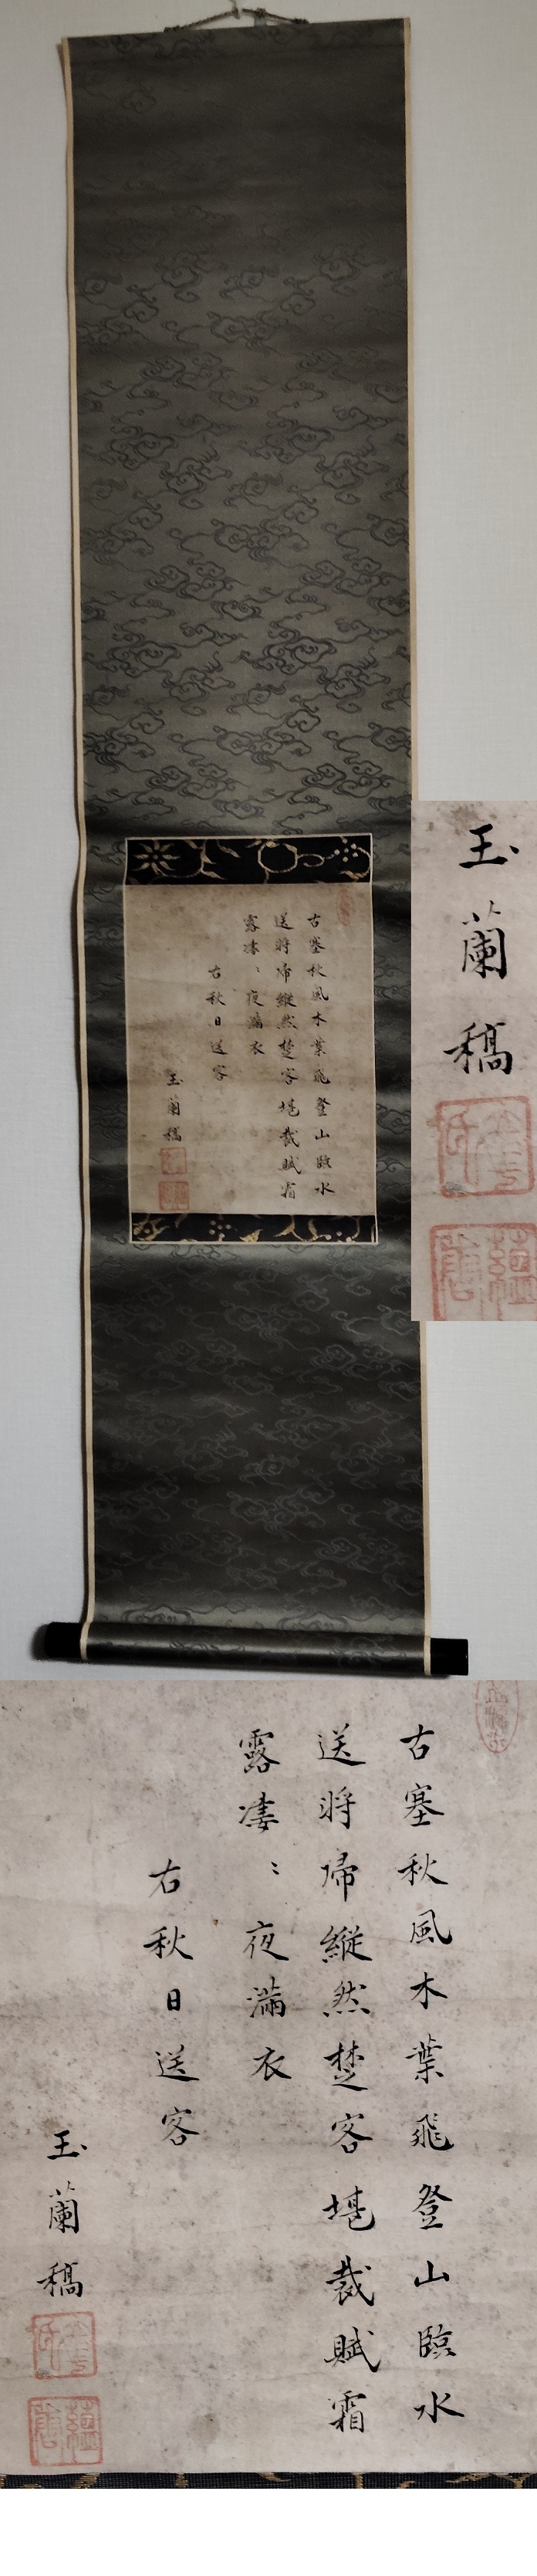 古塞秋風木葉飛登山臨水
送將帰縦然楚客堪裁賦霜
露凄〻夜満衣
右秋日送客
玉蘭稿